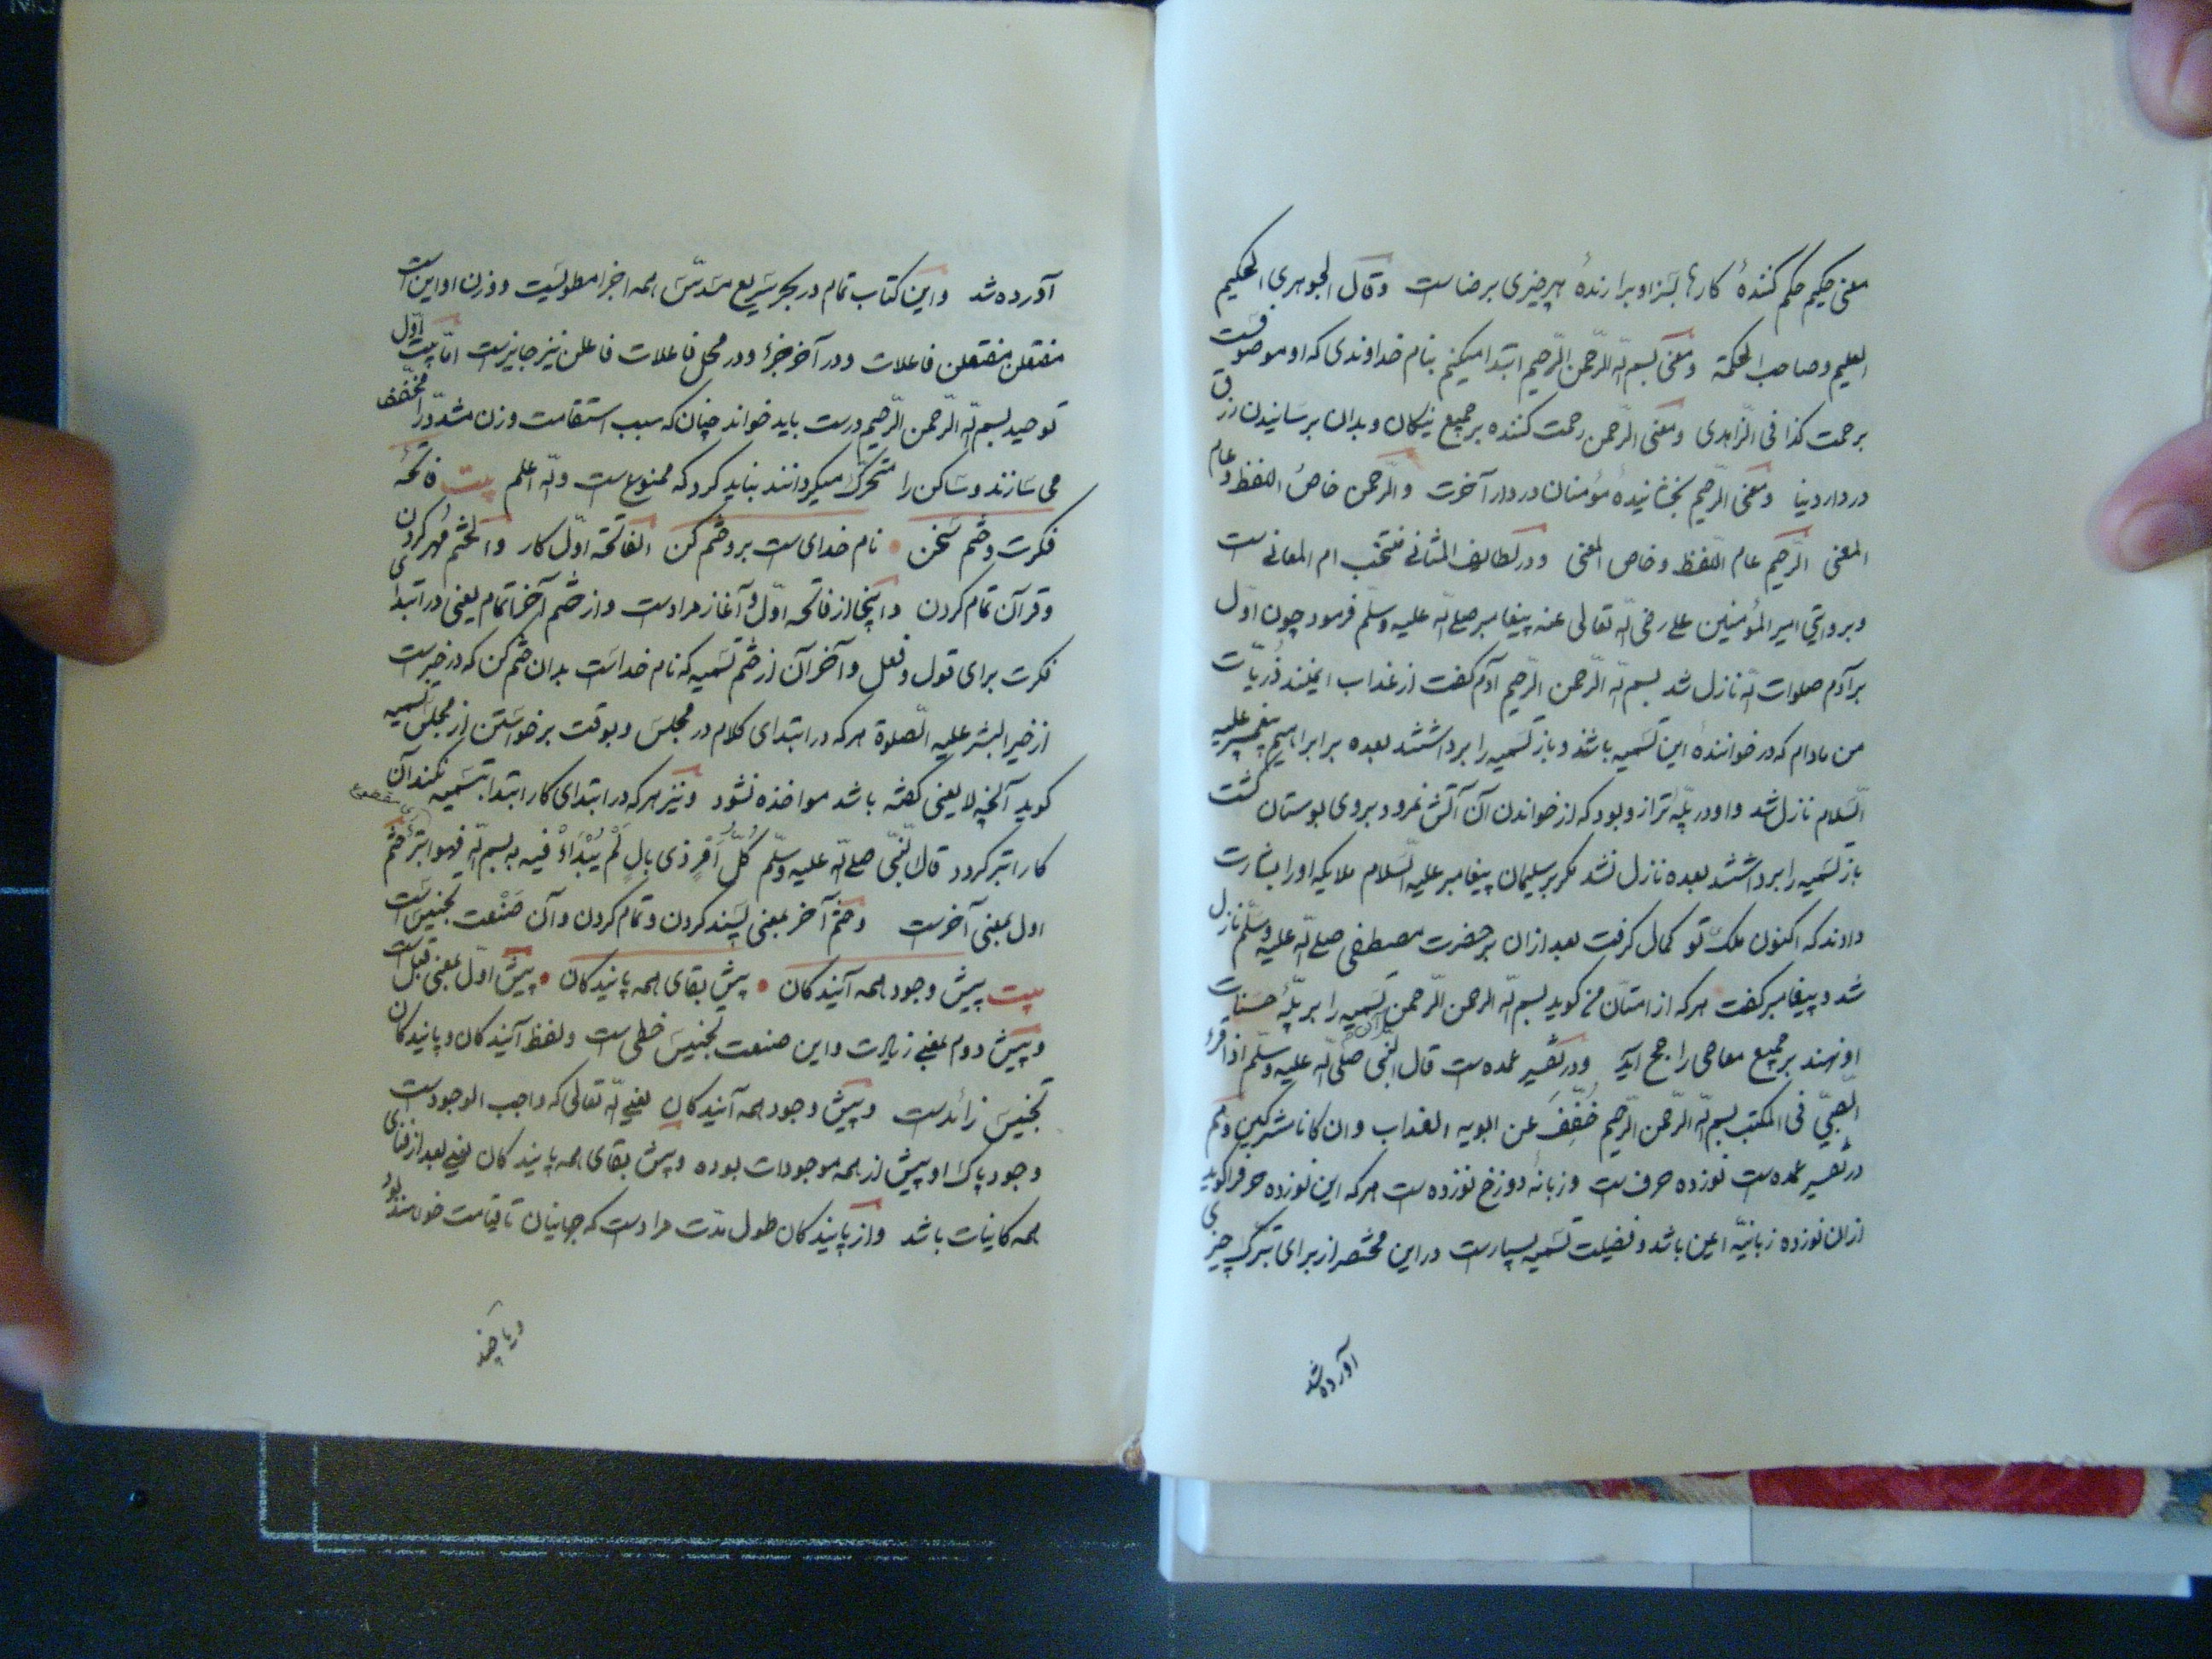 معنی حکیم حکم کنندهٔ کارها بسزا و برارندهٔ هر چیزی بر خاست وقال الجوهری الحکیم
العلیم و صاحب الحکمة و معنی بسم الله الرحمن الرحیم ابتدا میکنم بنام خداوندی که او موصوفست
برحمت کذا فی الزاهدی و معنی الرحمن رحمت کننده بر جمیع نیکان و بدان برسانیدن رزق
در دار دنیا و معنی الرحیم بخشانیدهٔ مؤمنان در دار آخرت و الرحمن خاص اللفظ و عام
المعنی الرحیم عام اللفظ و خاص المعنی و در لطایف المثانی منتخب ام المعانی ست
و بروایتی امیر المؤمنین علی رضی الله تعالی عنه پیغامبر صلی الله علیه وسلم فرمود چون اول
بر آدم صلوات الله نازل شد بسم الله الرحمن الرحیم آدم گفت از عذاب ایمنند ذریات
من مادام که در خوانندهٔ این تسمیه باشند و باز تسمیه را برداشتند بعده بر ابراهیم پیغمبر علیه
السلام نازل شد و او در پلهٔ ترازو بود که از خواندن آن آتش نمرود بر وی بوستان گشت
باز تسمیه را برداشتند بعده نازل نشد مگر بر سلیمان پیغامبر علیه السلام ملایکه او را بشارت
دادند که اکنون ملک تو کمال گرفت بعد ازان بر حضرت مصطفی صلی الله علیه وسلم نازل
شد و پیغامبر گفت هرکه از امتان من گوید بسم الله الرحمن الرحمن تسمیه را بر پلهٔ حسنات
او نهند بر جمیع معاصی راجح آید و در تفسیر عمده ست قال النبی صلی الله علیه وسلم اذا قرأ
الصبی فی المکتب بسم الله الرحمن الرحیم خُفِّفَ عن ابویه العذاب وان کانا مشرکین و هم
در تفسیر عمده ست نوزده حرف ست و زبانهٔ دوزخ نوزده ست هرکه این نوزده حرف را گوید
ازان نوزده زبانیه امین باشد و فضیلت تسمیه بسیارست در این مختصر از برای تبرک چیزی
آورده شد
آورده شد و این کتاب تمام در بحر سریع مسدّس همه اجزا مطویست و وزن او این است
مفتعلن مفتعلن فاعلات و در آخر جزء و در محل فاعلات فاعلن نیز جایزست اما بیت اول
توحید بسم الله الرحمن الرحیم درست باید خواند چنان که سبب استقامت وزن مشدّد را مخفف
می سازند و ساکن را متحرک میگردانند نباید کرد که ممنوع ست والله اعلم بیت فاتحهٔ
فکرت و ختم سخن • نام خدای ست برو ختم کن الفاتحه اوّل کار و الختم مهر کردن
و قرآن تمام کردن و اینجا از فاتحه اوّل و آغاز مرادست و از ختم آخر تمام یعنی در ابتدای
فکرت برای قول و فعل و آخر آن از ختم تسمیه که نام خداست بدان ختم کن که در خبرست
از خیر البشر علیه الصلوة هرکه در ابتدای کلام در مجلس و بوقت برخواستن از مجلس تسمیه
گوید آنچه لا یعنی گفته باشد مواخذه نشود و نیز هرکه در ابتدای کار ابتدا بتسمیه نکند آن
کار ابتر گردد قال النبی صلی الله علیه وسلم کُلُّ اَمْرٍ ذی بالٍ لَمْ یُبْدَأْ فیه به بسم الله فهو ابتر ختم
اول بمعنی آخرست و ختم آخر بمعنی پسند کردن و تمام کردن و آن صنعت تجنیس است
بیت پیش وجود همه آیندگان • پیش بقای همه پایندگان • پیش اوّل بمعنی قبل است
و پیش دوم بمعنی زیادت و این صنعت تجنیس خطی ست و لفظ آیندگان و پایندگان
تجنیس زائدست و پیش وجود همه آیندگان یعنی الله تعالی که واجب الوجودست
وجود پاک او پیش از همه موجودات بوده و پیش بقای همه پایندگان یعنی بعد از فنای
همه کاینات باشد و از پایندگان طول مدت مرادست که جهانیان تا قیامت خواهند بود